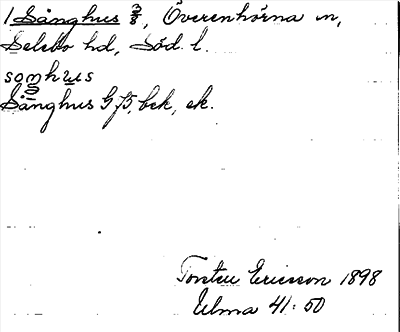 1 Sånghus 3/8, Överenhörna sn,
Selebo hd, Söd. l.
somhus
Sånghus G75, bek, ek.
Torsten Ericsson 1898
Ulma 41:50